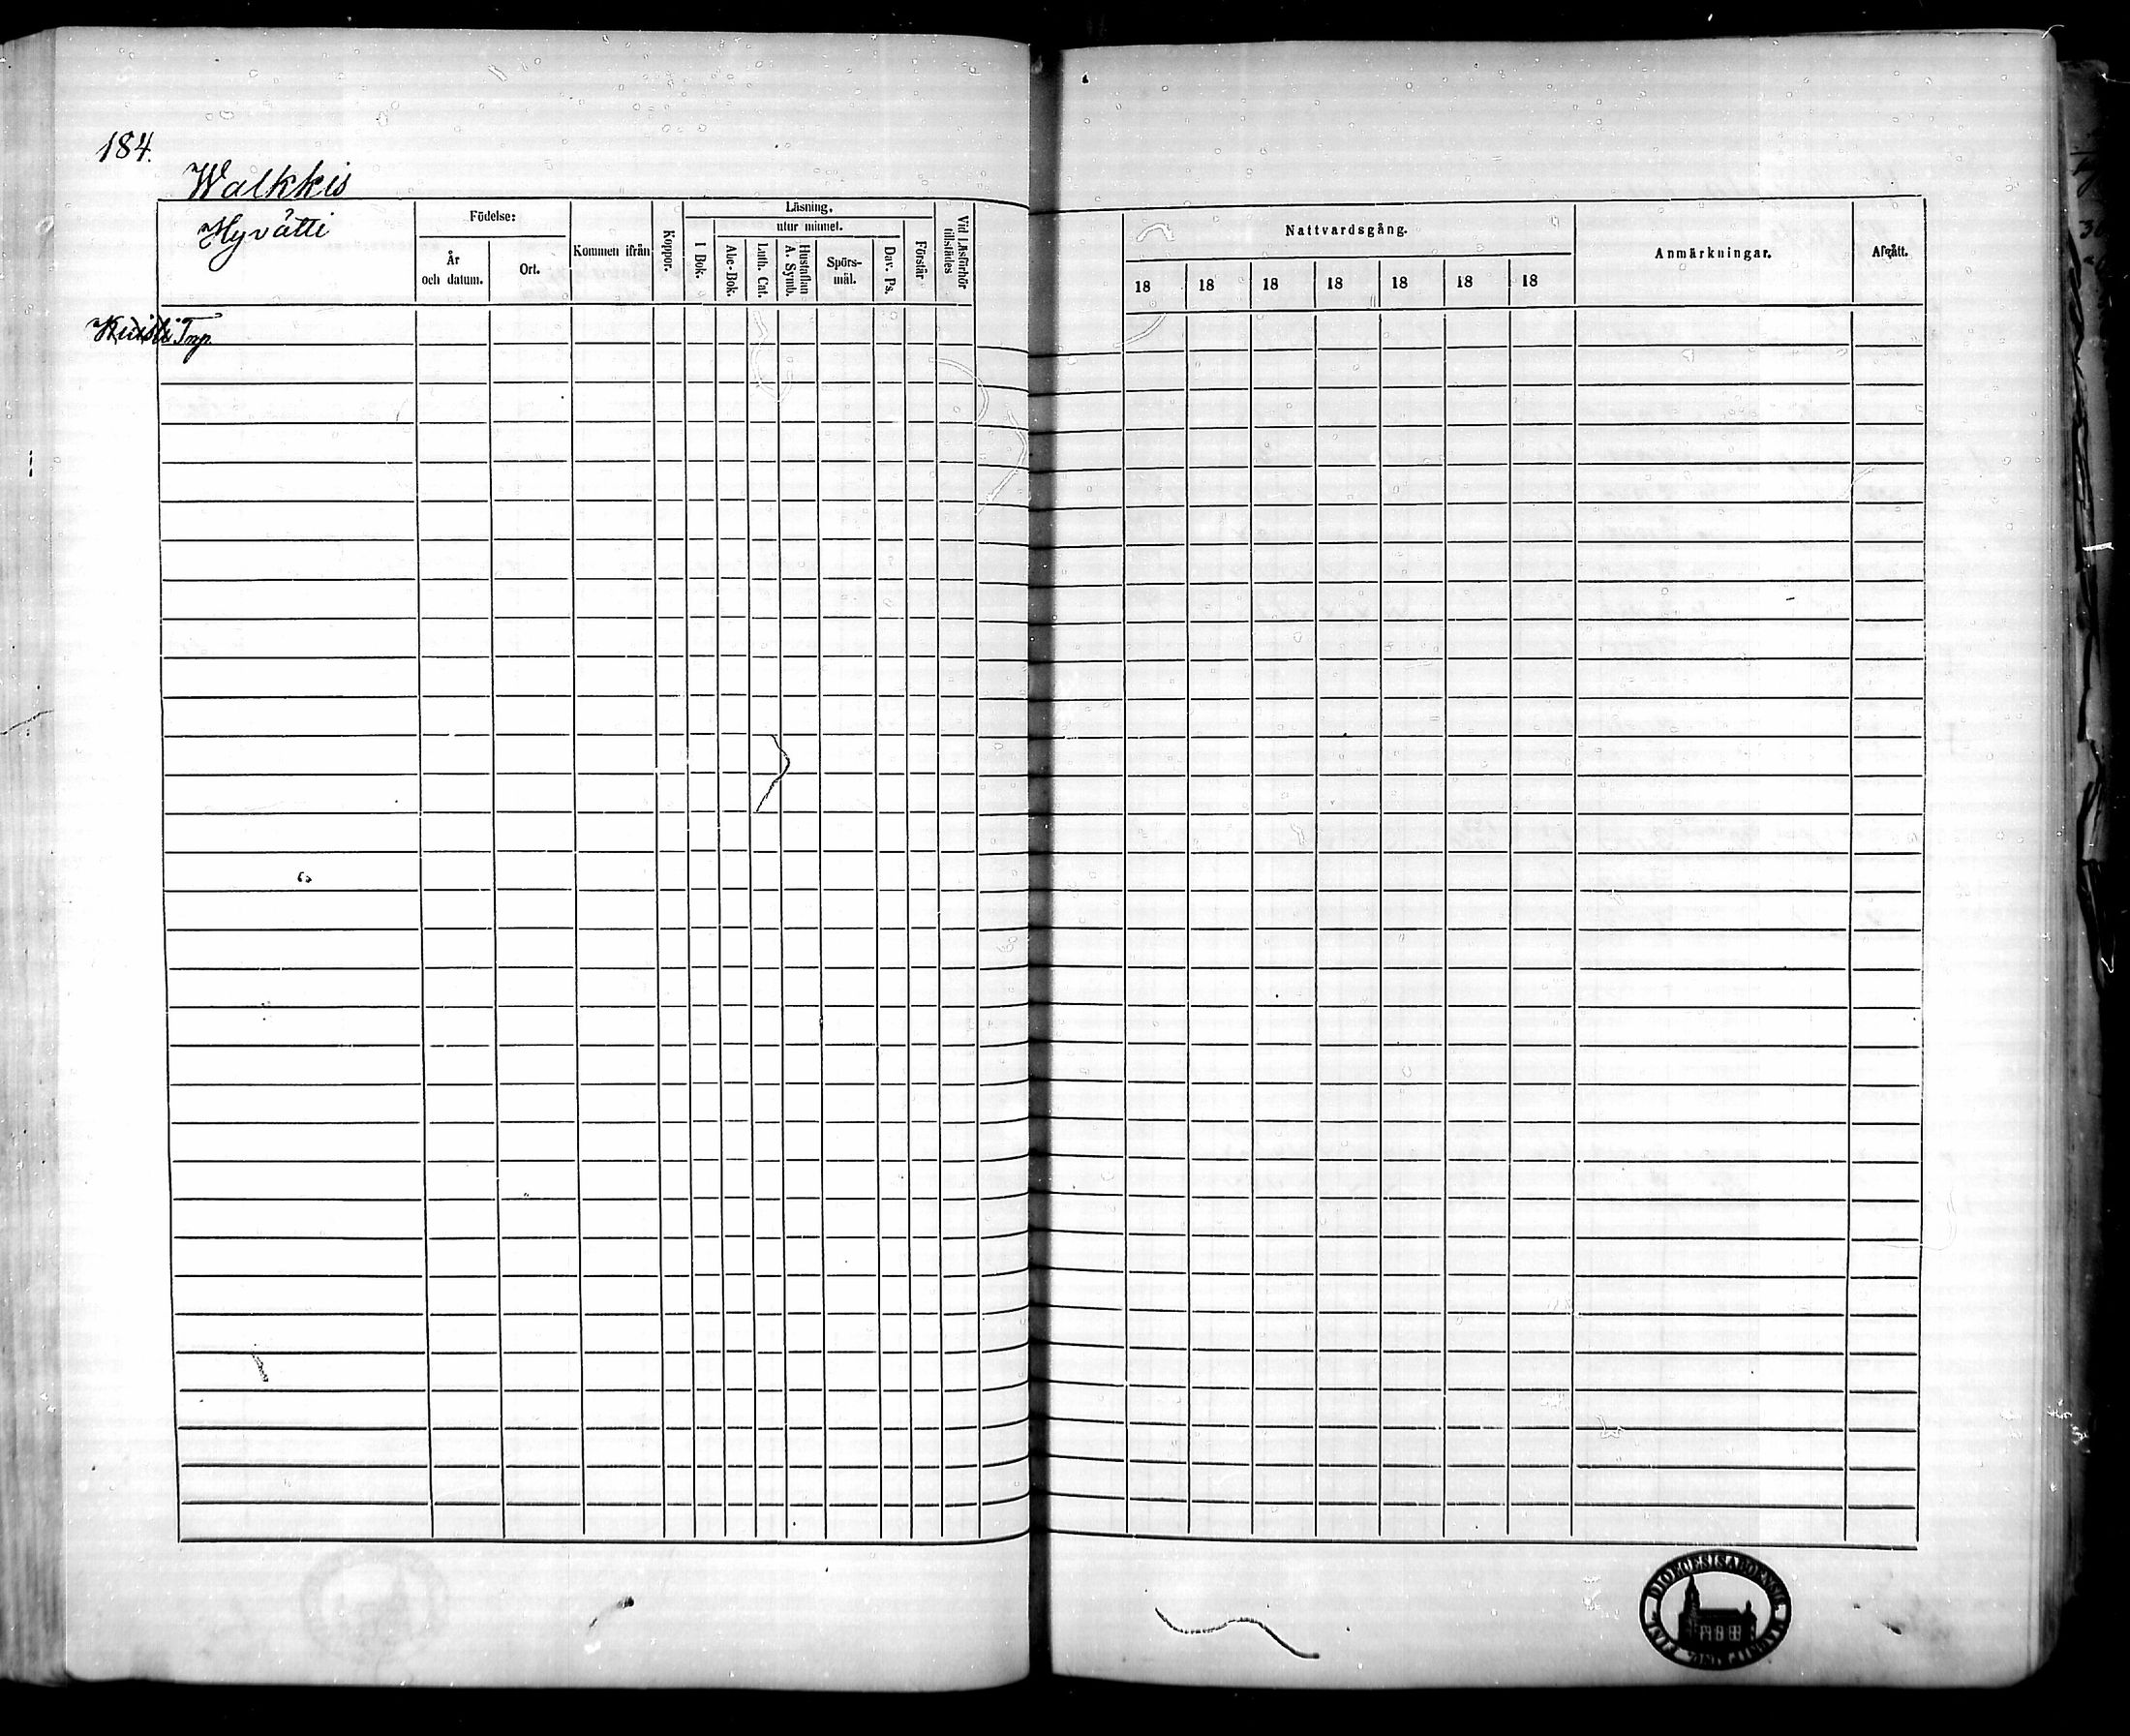 184.
Walkkis
Hyvätti
Födelse:
År
och datum.
Ort.
Kommen ifrån
Koppor.
Läsning,
utur minnet.
I Bok.
Abc-Bok.
Luth. Cat.
Hustaflan
A. Symb.
Spörs-
mål.
Dav. Ps.
Förstår
Vid Läsförhör
tillstädes
Torp.
Nattvardsgång.
18 18 18 18 18 18 18
Anmärkningar.
Afgått.